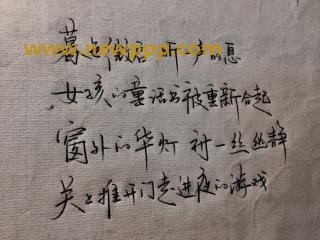 www.newppp.com
听一声叹息
女孩的童话书被重新合起
窗外的华灯 衬一丝丝静
关上推开门走进夜的游戏